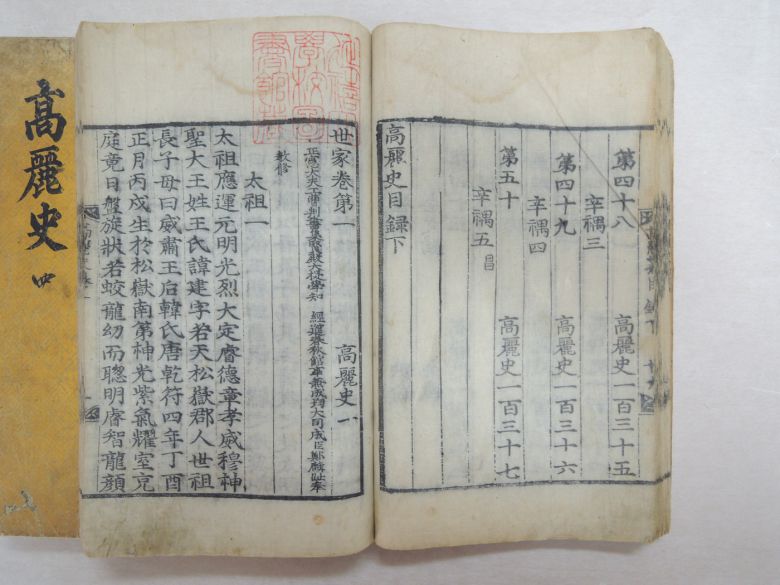 第四十八 高麗史一百三十五
辛禑三
第四十九 高麗史一百三十六
辛禑四
第五十 高麗史一百三十七
辛禑五 昌
高麗史目録下
世家卷第一 高麗史一
正憲大夫工曹判書集賢殿大提學知 經筵春秋館事兼成均大司成臣鄭麟趾奉
敎修
太祖一
太祖應運元明光烈大定睿德章孝威穆神
聖大王姓王氏諱建字若天松嶽郡人世祖
長子母曰威肅王后韓氏唐乾符四年丁酉
正月丙戌生於松嶽南第神光紫氣耀室充
庭竟日盤旋狀若蛟龍幼而聰明睿智龍顔
高麗史 四